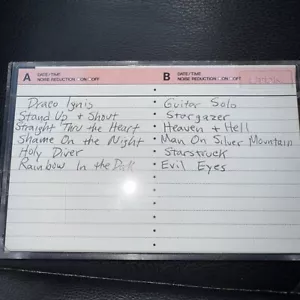 A DATE/TIME
NOISE REDUCTION ON OFF
B DATE/TIME
NOISE REDUCTION ON OFF
Draco Ignis
Stand Up + Shout
Straight Thru the Heart
Shame On the Night
Holy Diver
Rainbow In the Drk
Guitar Solo
Stargazer
Heaven + Hell
Man On Silver Mountain
Starstruck
Evil Eyes